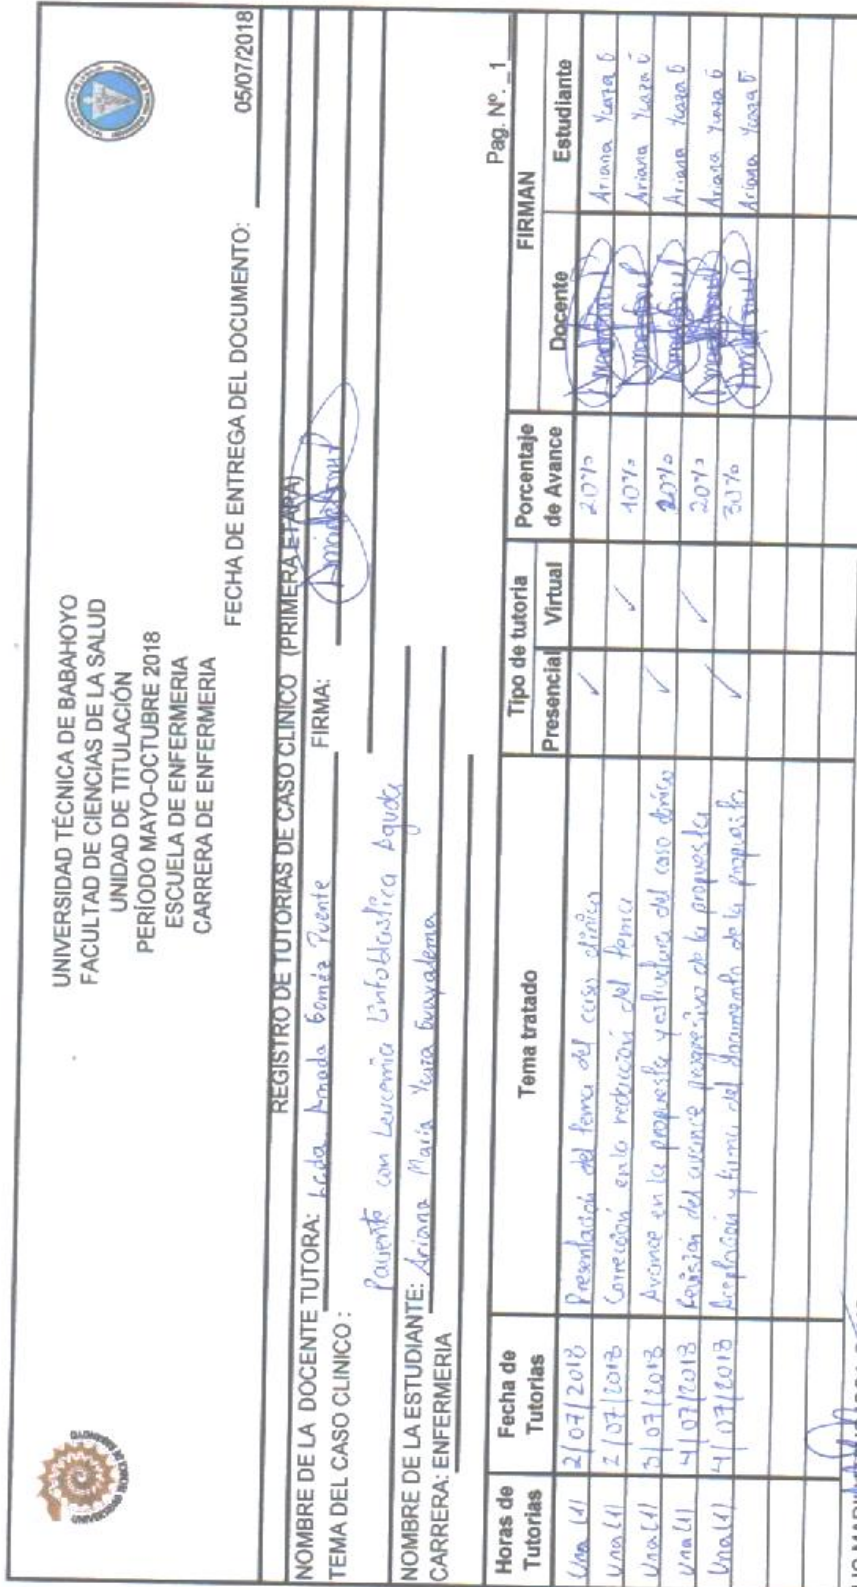 UNIVERSIDAD TÉCNICA DE BABAHOYO
FACULTAD DE CIENCIAS DE LA SALUD
UNIDAD DE TITULACIÓN
PERÍODO MAYO-OCTUBRE 2018
ESCUELA DE ENFERMERIA
CARRERA DE ENFERMERIA
FECHA DE ENTREGA DEL DOCUMENTO: 05/07/2018
REGISTRO DE TUTORIAS DE CASO CLINICO (PRIMERA ETAPA)
NOMBRE DE LA DOCENTE TUTORA: Lcda. Amada Goméz Puente FIRMA:
TEMA DEL CASO CLINICO :
Paciente con Leucemia Linfoblástica Aguda
NOMBRE DE LA ESTUDIANTE: Ariana María Ycaza
CARRERA: ENFERMERIA
Pag. Nº. _1_
Horas de Tutorias Fecha de Tutorias Tema tratado Tipo de tutoria Porcentaje de Avance FIRMAN
Presencial Virtual Docente Estudiante
Una (1) 2/07/2018 Presentación del tema del caso clínico ✓ 20% Ariana Ycaza G
Una (1) 2/07/2018 Corrección en la redacción del tema ✓ 10% Ariana Ycaza G
Una (1) 3/07/2018 Avance en la propuesta y estructura del caso clínico ✓ 20% Ariana Ycaza G
Una (1) 4/07/2018 Revisión del avance progresivo de la propuesta ✓ 20% Ariana Ycaza G
Una (1) 4/07/2018 Aceptación y firma del documento de la propuesta ✓ 30% Ariana Ycaza G